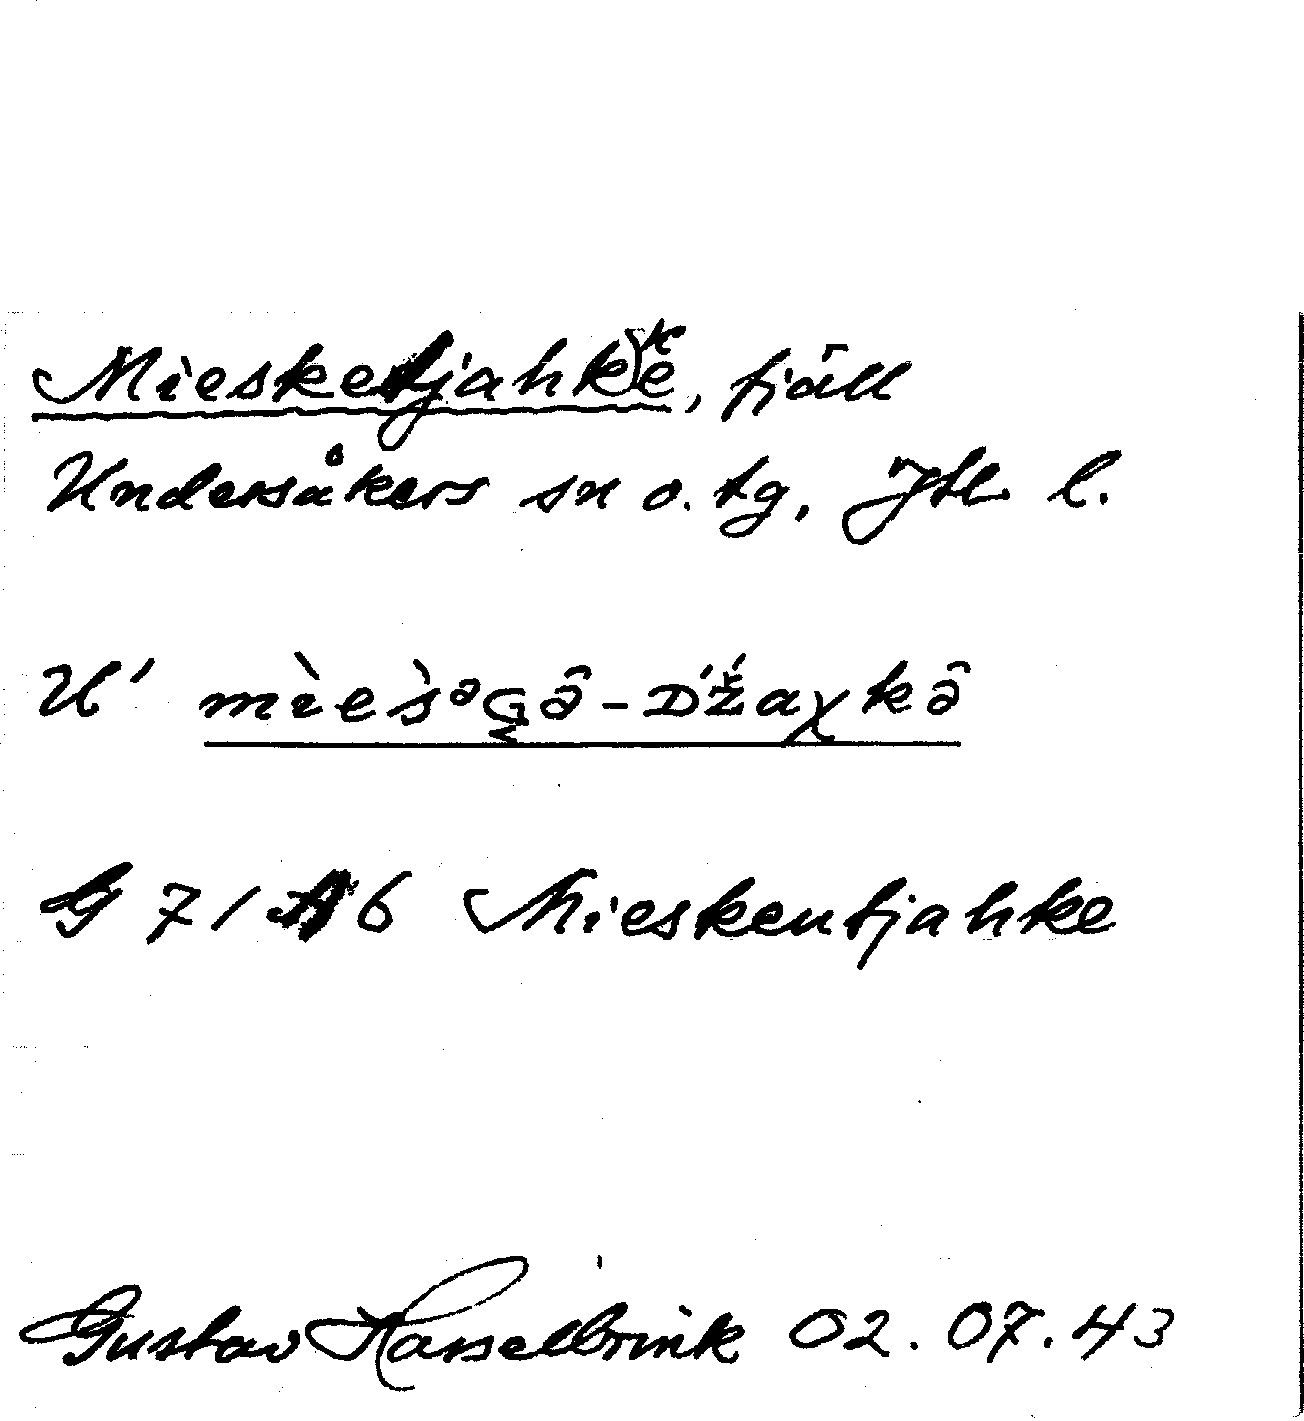 Mieskentjahkke, fjäll
Undersåkers sn o. tg, Jtl l.
U' mìes̀ᵊG̬ə̂-D'ž́aχkə̂
G 7/ 6 Mieskentjahke
Gustav Hasselbrink 02.07.43